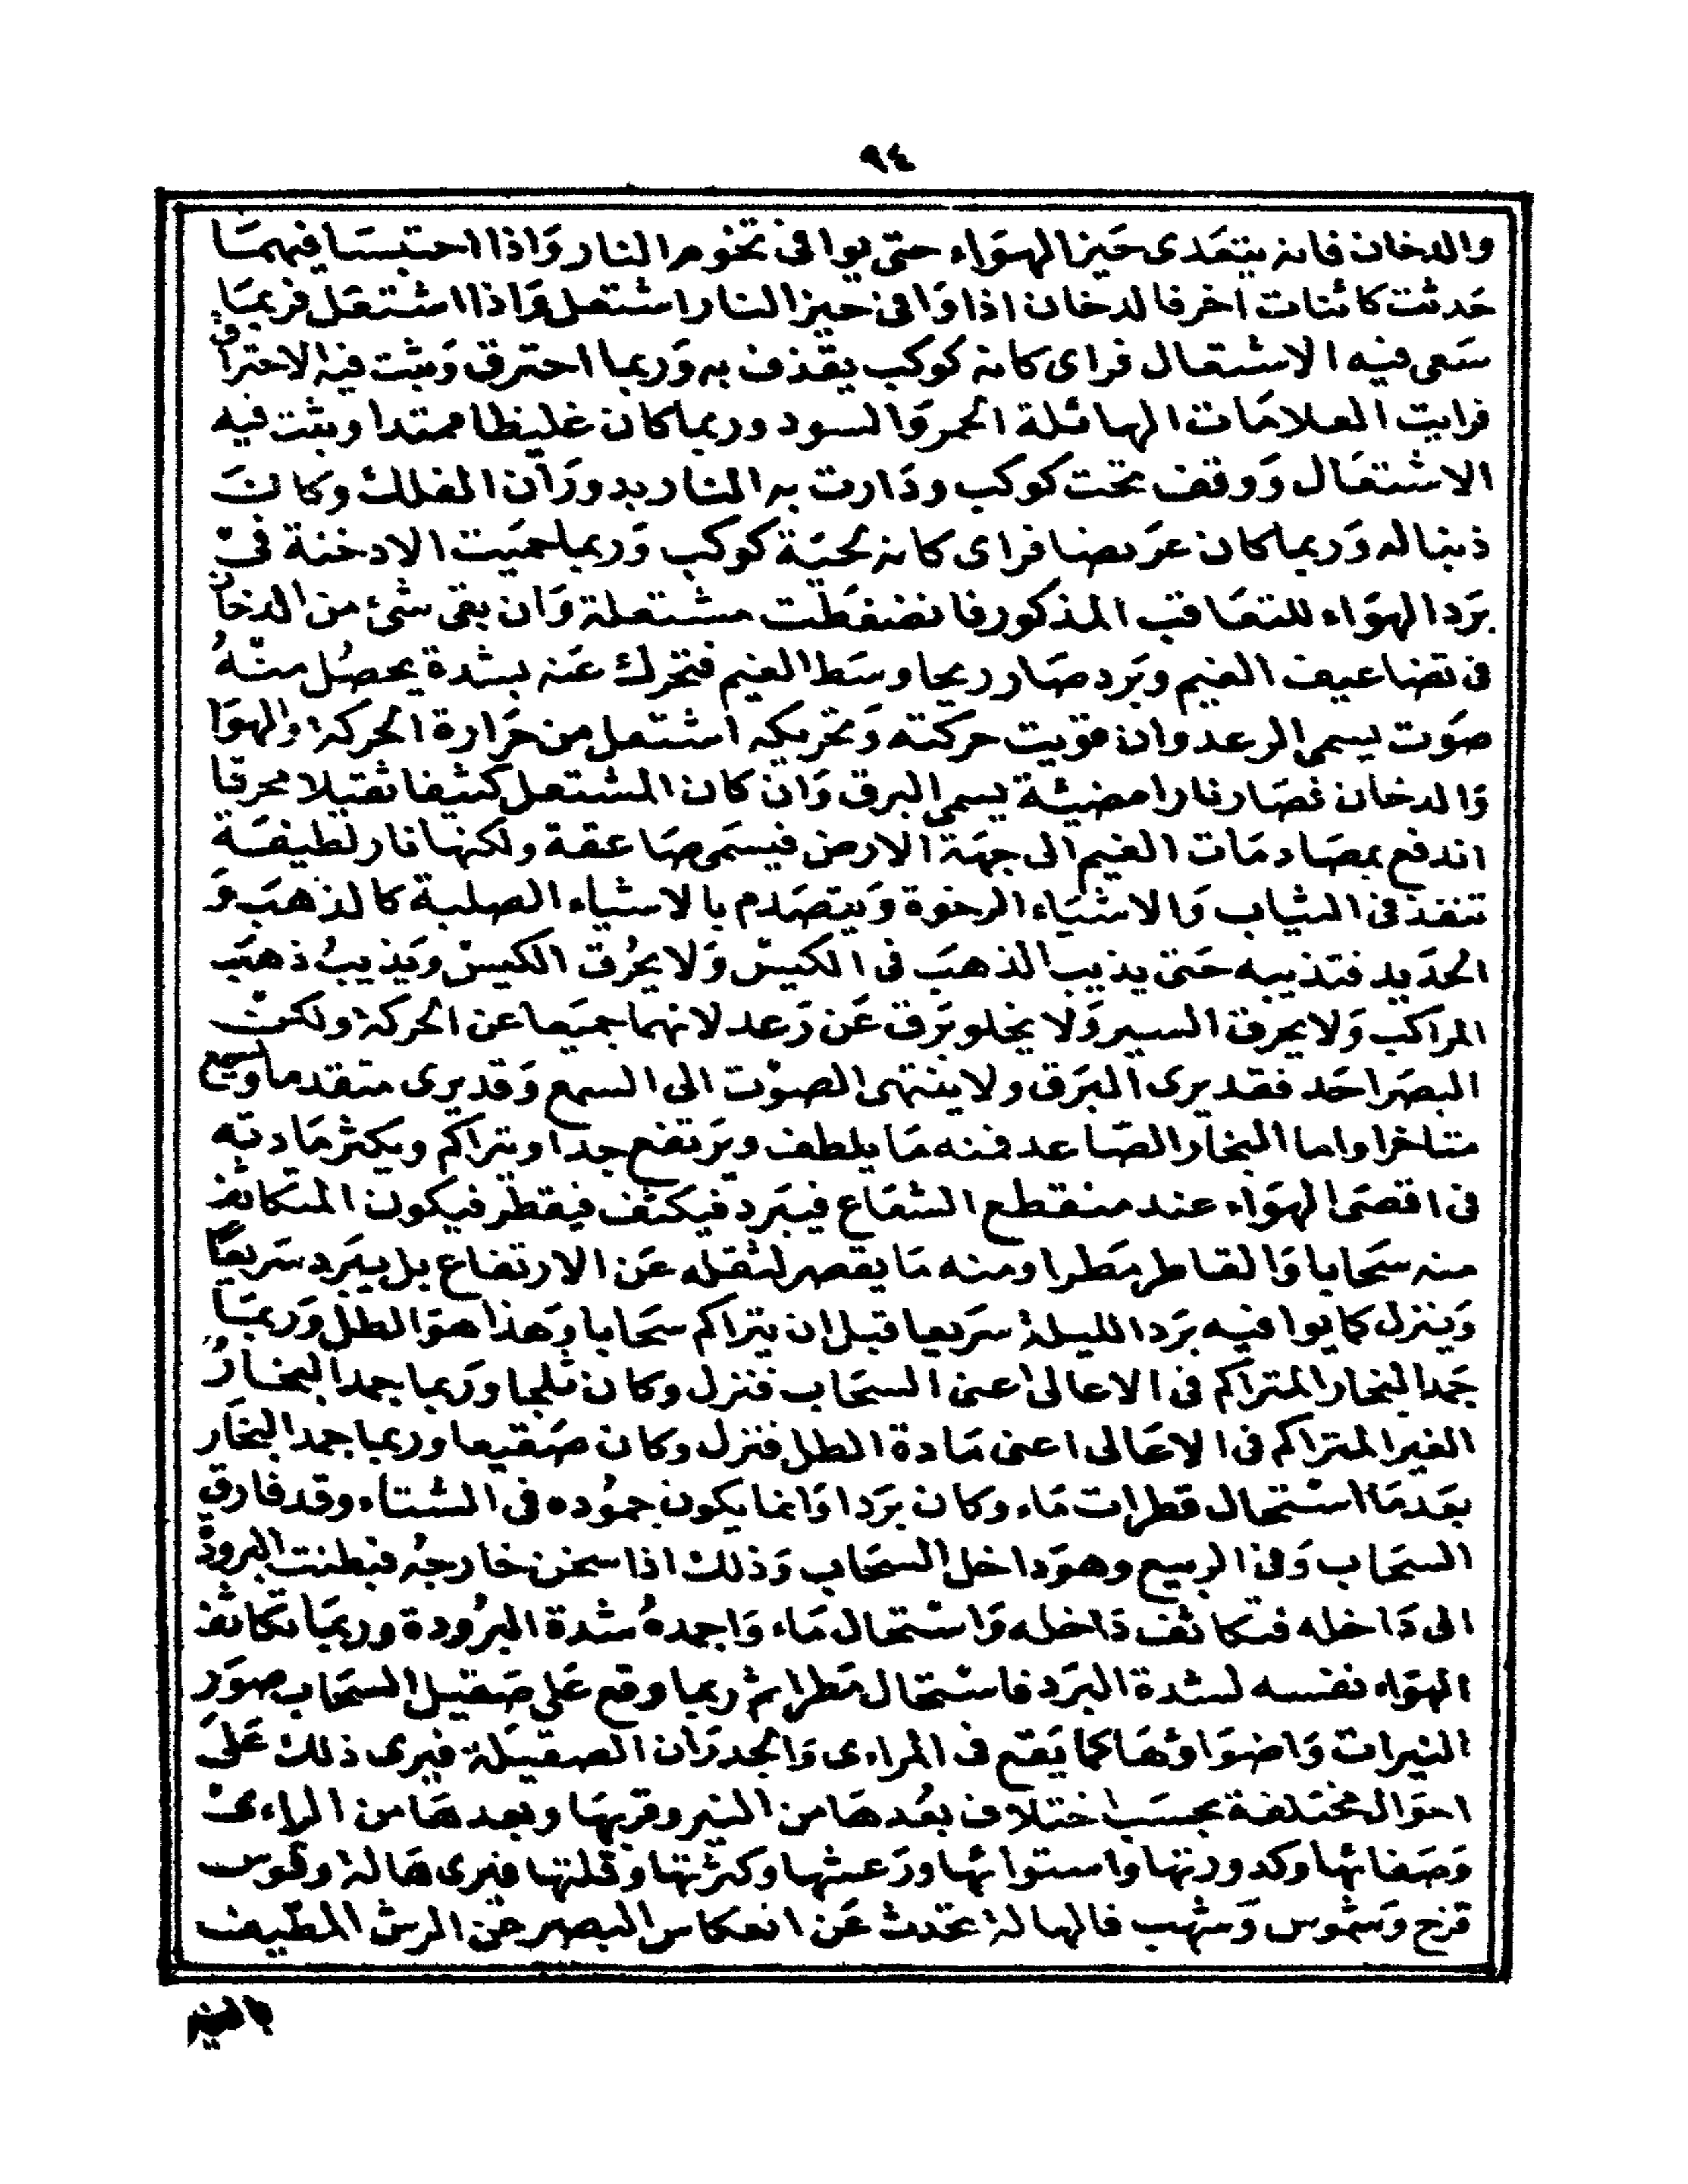 ٩٤
والدخان فانه يتعدى حيز الهواء حتى يوافى تخوم النار واذا احتبسا فيهما
حدثت كائنات اخر فالدخان اذا وافى حيز النار اشتعل واذا اشتعل فربما
سعى فيه الاشتعال فراى كانه كوكب يقذف به وربما احترق وثبت فيه الاحتراق
فرايت العلامات الهائلة الحمر والسود وربما كان غليظا ممتدا وثبت فيه
الاشتعال ووقف تحت كوكب ودارت به النار بدوران الفلك وكان
ذنبا له وربما كان عريضا فراى كانه لحية كوكب وربما حميت الادخنة فى
برد الهواء للتعاقب المذكور فانضغطت مشتعلة وان بقى شئ من الدخان
فى تضاعيف الغيم وبرد صار ريحا وسط الغيم فتحرك عنه بشدة يحصل منه
صوت يسمى الرعد وان قويت حركته وتحريكه اشتعل من حرارة الحركة والهوا
والدخان فصار نارا مضيئة يسمى البرق وان كان المشتعل كثيفا ثقيلا محرقا
اندفع بمصادمات الغيم الى جهة الارض فيسمى صاعقة ولكنها نار لطيفة
تنفذ فى الثياب والاشياء الرخوة ويتصدم بالاشياء الصلبة كالذهب و
الحديد فتذيبه حتى يذيب الذهب فى الكيس ولا يحرق الكيس ويذيب ذهب
المراكب ولا يحرق السير ولا يخلو برق عن رعد لانهما جميعا عن الحركة ولكن
البصر احد فقد يرى البرق ولا ينتهى الصوت الى السمع وقد يرى متقدما ويسمع
متاخرا واما البخار الصاعد فمنه ما يلطف ويرتفع جدا ويتراكم ويكثر مادته
فى اقصى الهواء عند منقطع الشعاع فيبرد فيكثف فيقطر فيكون المتكاثف
منه سحابا والقاطر مطرا ومنه ما يقصر لثقله عن الارتفاع بل يبرد سريعا
وينزل كما يوافيه برد الليلة سريعا قبل ان يتراكم سحابا وهذا هو الطل وربما
جمد البخار المتراكم فى الاعالى اعنى السحاب فنزل وكان ثلجا وربما جمد البخار
الغير المتراكم فى الاعالى اعنى مادة الطل فنزل وكان صقيعا وربما جمد البخار
بعد ما استحال قطرات ماء وكان بردا وانما يكون جموده فى الشتاء وقد فارق
السحاب وفى الربيع وهو داخل السحاب وذلك اذا سخن خارجه فبطنت البرودة
الى داخله فتكاثف داخله واستحال ماء واجمده شدة البرودة وربما تكاثف
الهواء نفسه لشدة البرد فاستحال مطرا ثم ربما وقع على صقيل السحاب صور
النيرات واضواؤها كما يقع فى المراءى والجدران الصقيلة فيرى ذلك على
احوال مختلفة بحسب اختلاف بعدها من النير وقربها وبعدها من الراءى
وصفائها وكدورتها واستوائها ورعشها وكثرتها وقلتها فيرى هالة وقوس
قزح وشموس وشهب فالهالة تحدث عن انعكاس البصر عن الرش المطيف